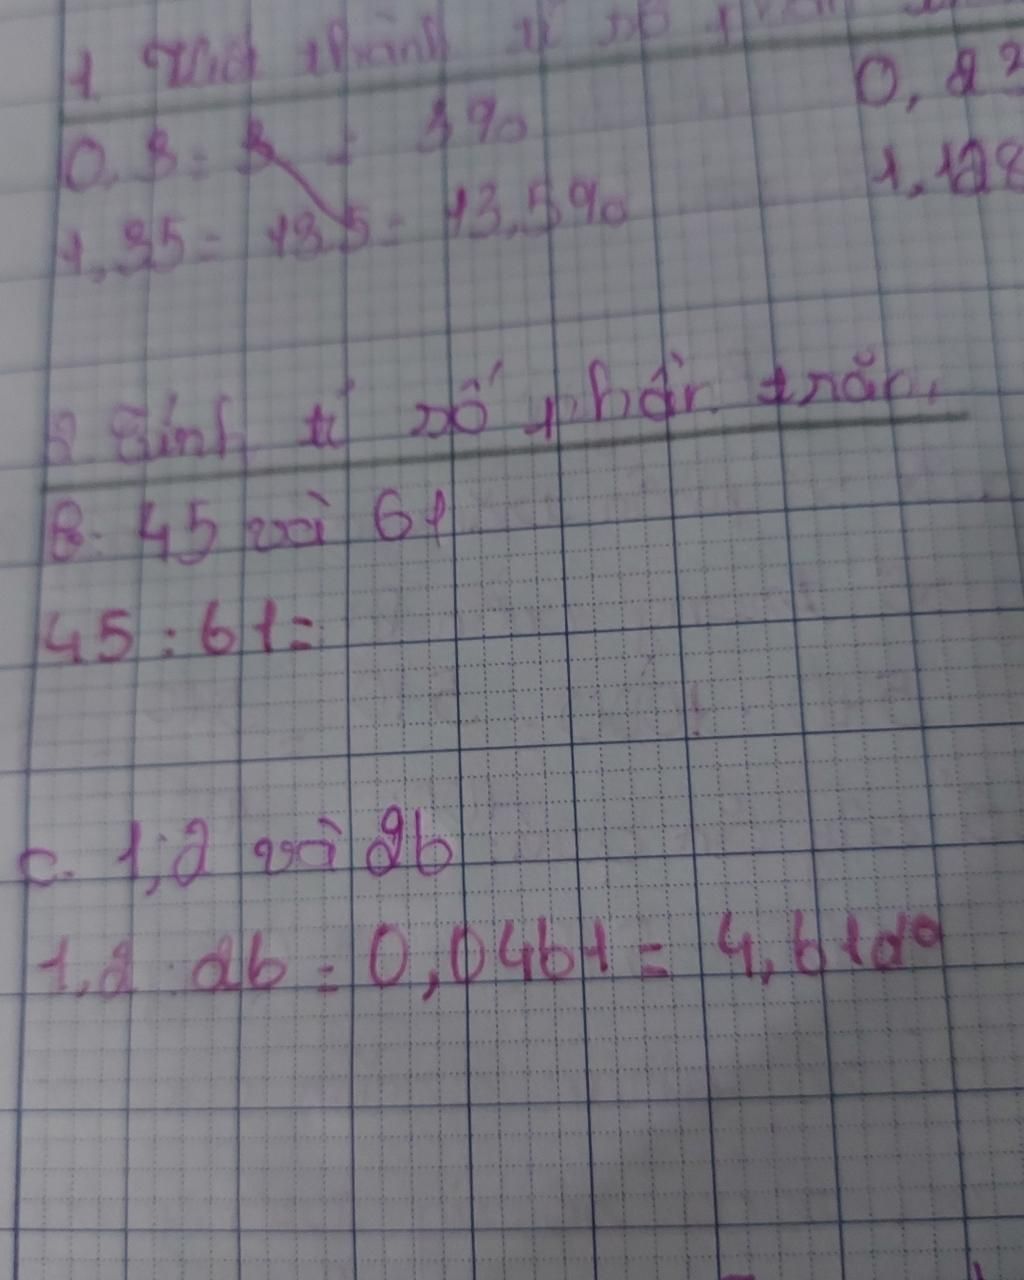 1. Viết thành tỉ số phần
0,3 = 3 = 3%
0,23
1,35 = 13,5 = 13,5%
1,128
2. Tính tỉ số phần trăm.
B. 45 và 61
45 : 61 =
C. 1,2 và 26
1,2 : 26 = 0,0461 = 4,61%